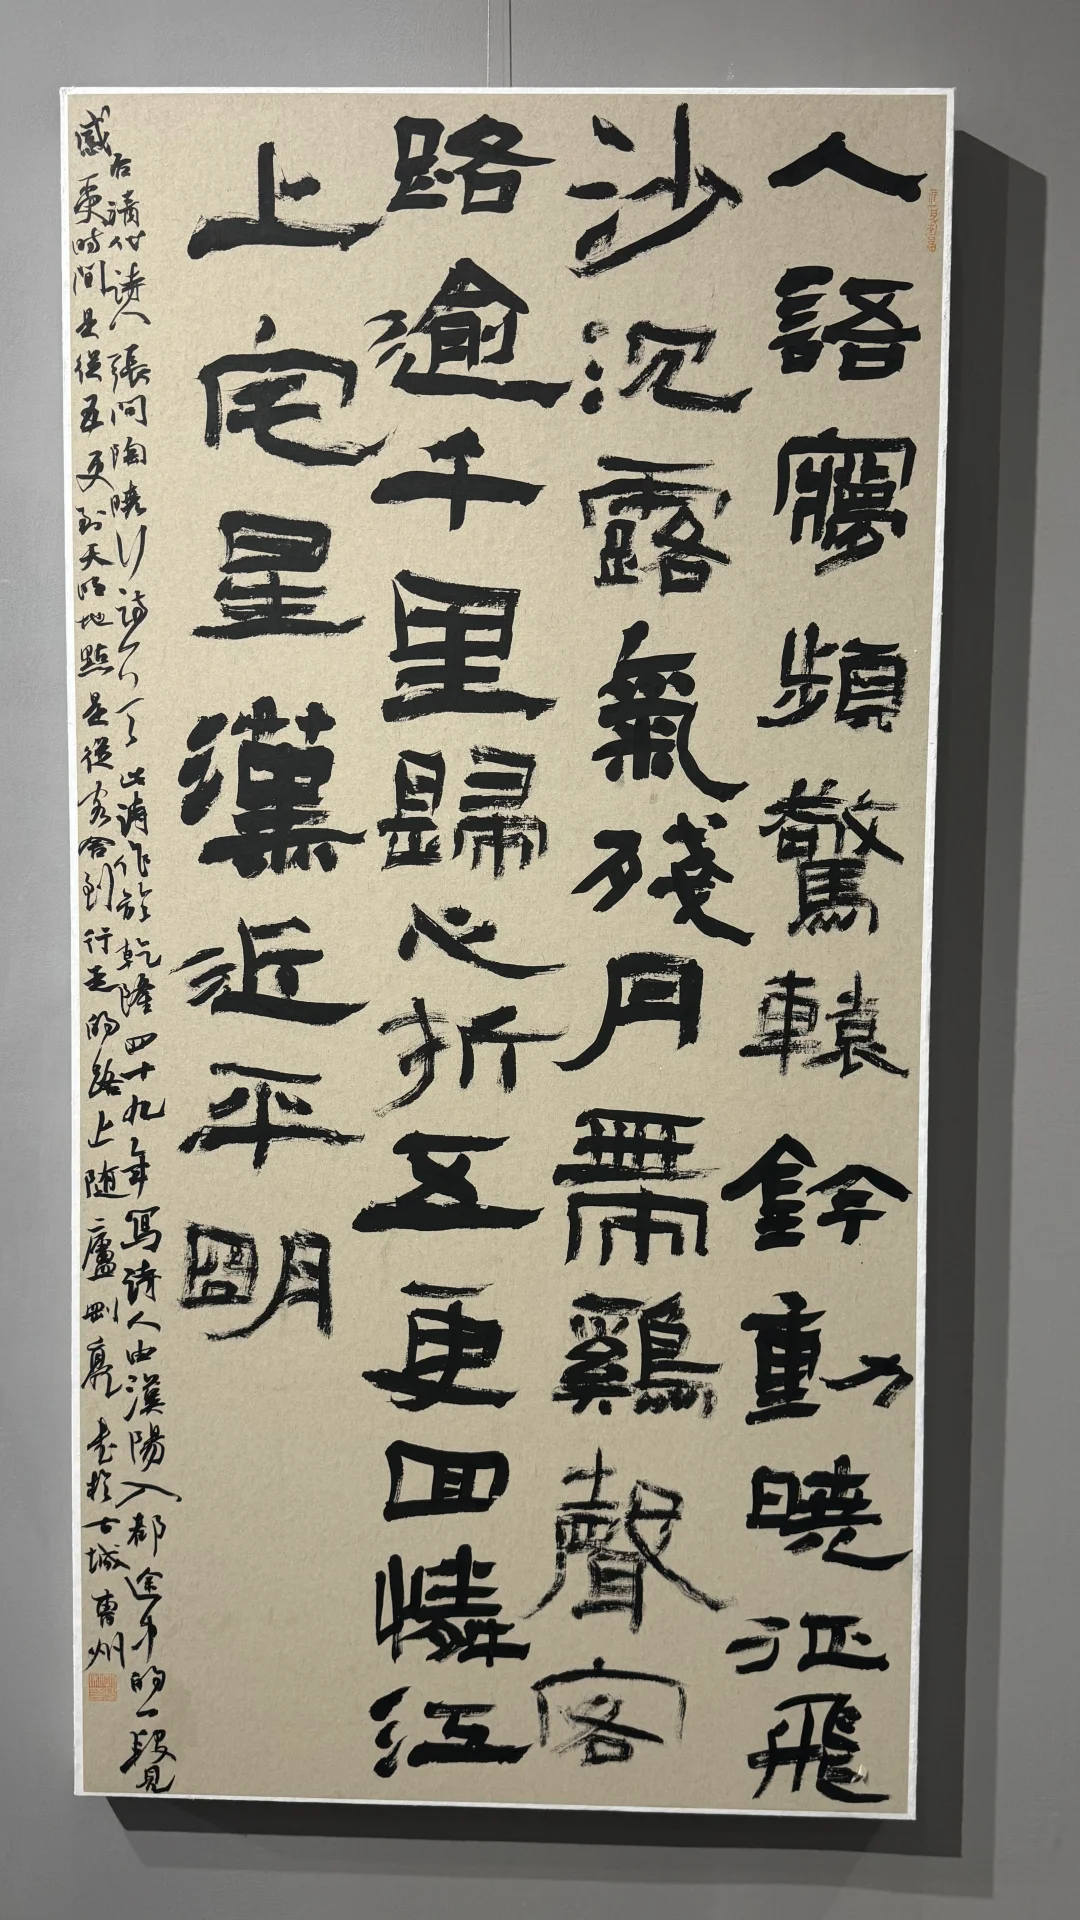 人語夢頻驚轅鈴動曉征飛
沙沉露氣殘月帶鷄聲客
路逾千里歸心折五更回憐江
上宅星漢近平明
右清代詩人張問陶曉行詩此詩作於乾隆四十九年寫詩人由漢陽入都途中的一段見
感受時間是從五更到天明地點是從客舍到行走的路上随廬剛亮書於古城曹州